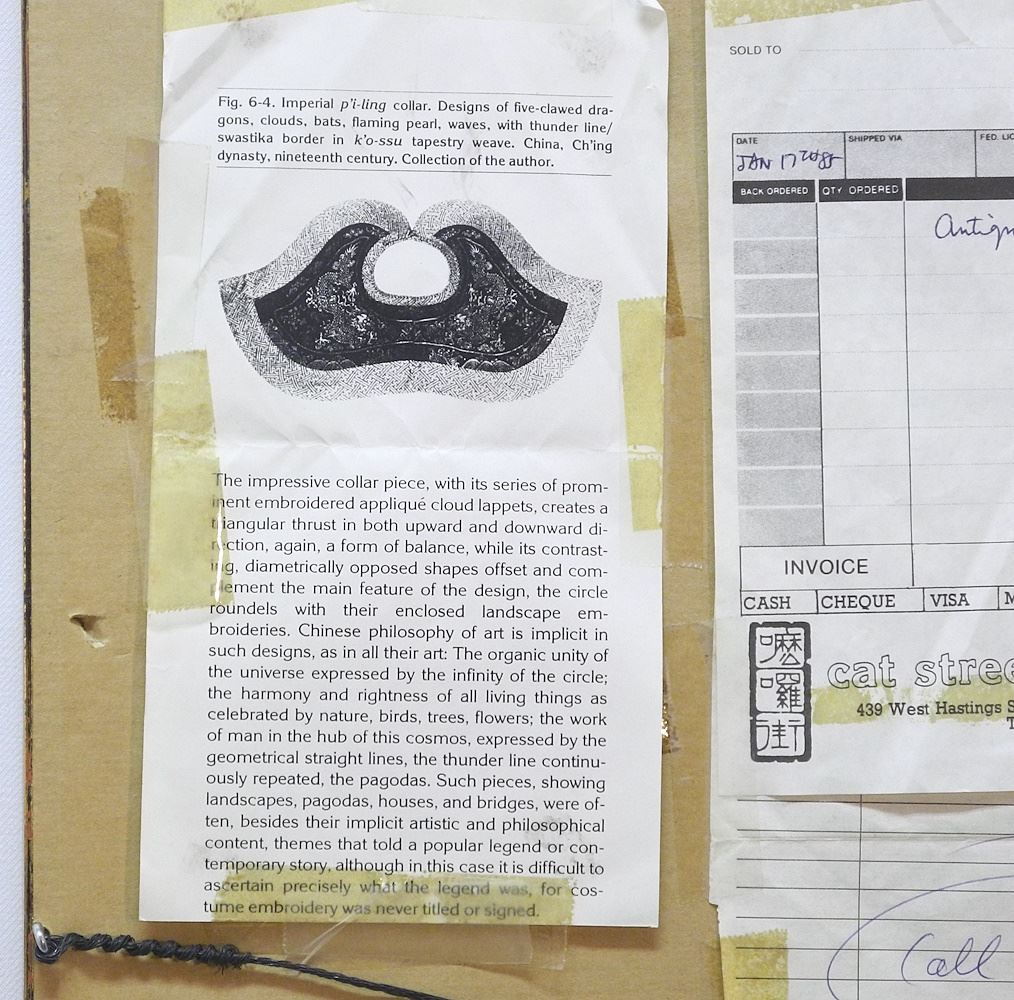 Fig. 6-4. Imperial p'i-ling collar. Designs of five-clawed dra-
gons, clouds, bats, flaming pearl, waves, with thunder line/
swastika border in k'o-ssu tapestry weave. China, Ch'ing
dynasty, nineteenth century. Collection of the author.
The impressive collar piece, with its series of prom-
inent embroidered appliqué cloud lappets, creates a
triangular thrust in both upward and downward di-
rection, again, a form of balance, while its contrast-
ing, diametrically opposed shapes offset and com-
plement the main feature of the design, the circle
roundels with their enclosed landscape em-
broideries. Chinese philosophy of art is implicit in
such designs, as in all their art: The organic unity of
the universe expressed by the infinity of the circle;
the harmony and rightness of all living things as
celebrated by nature, birds, trees, flowers; the work
of man in the hub of this cosmos, expressed by the
geometrical straight lines, the thunder line continu-
ously repeated, the pagodas. Such pieces, showing
landscapes, pagodas, houses, and bridges, were of-
ten, besides their implicit artistic and philosophical
content, themes that told a popular legend or con-
temporary story, although in this case it is difficult to
ascertain precisely what the legend was, for cos-
tume embroidery was never titled or signed.
SOLD TO
DATE SHIPPED VIA FED. LIC
JAN 17
BACK ORDERED QTY ORDERED
Antiq
INVOICE
CASH CHEQUE VISA M
嚤囉街
cat stree
439 West Hastings S
T
Call